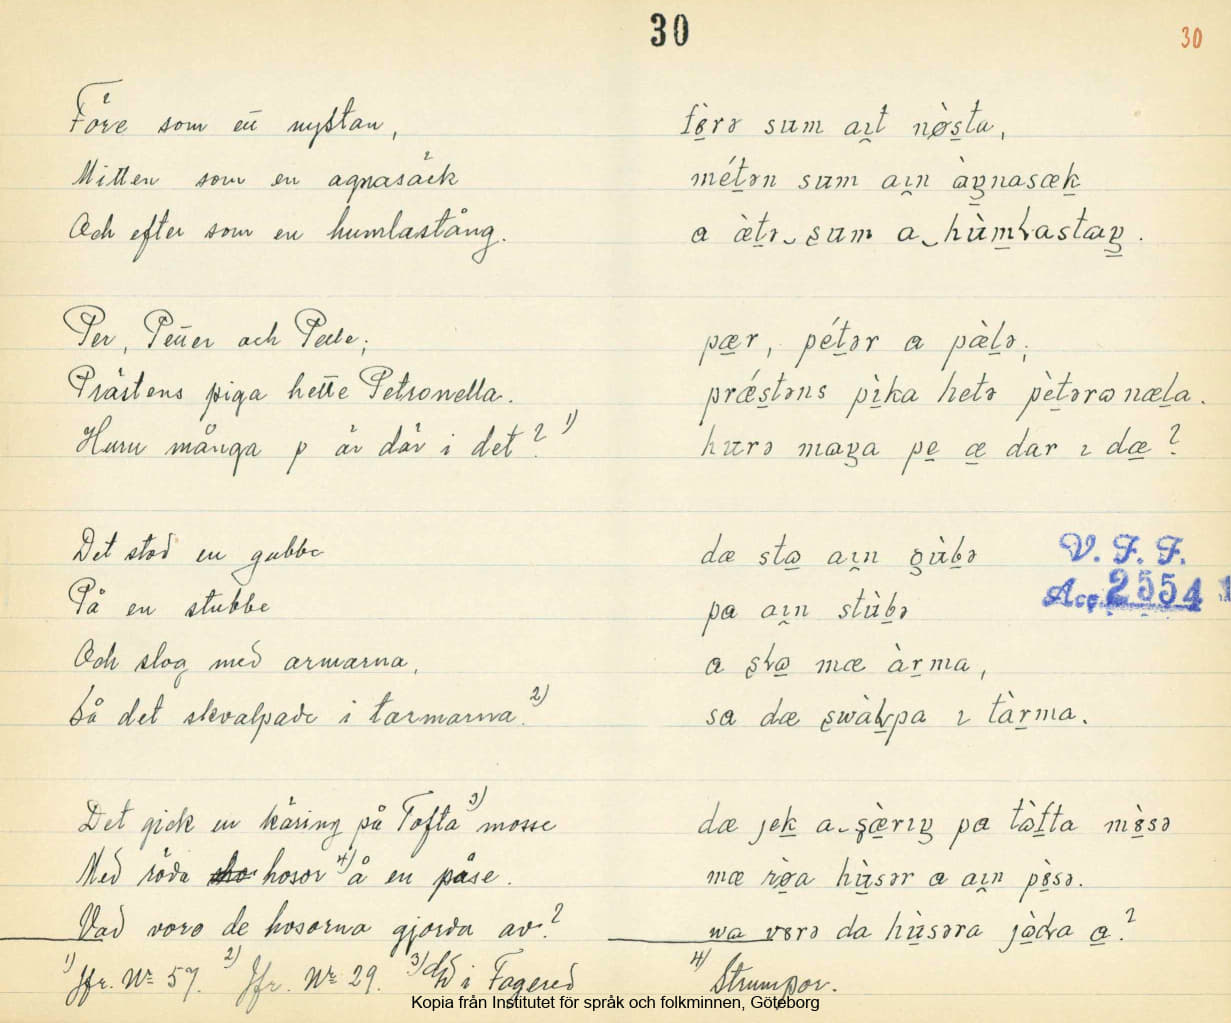 30
30
Före som en̄ nystan,
Mitten som en agnasäck
Och efter som en humlastång.
Per, Petter och Pelle;
Prästens piga hette Petronella.
Huru många p är där i det? 1)
Det stod en gubbe
På en stubbe
Och slog med armarna,
Så det skvalpade i tarmarna. 2)
Det gick en käring på Tofta 3) mosse
Med röda hosor 4) å en påse.
Vad voro de hosorna gjorda av?
fɵ̀rə sum aɪt nø̀sta,
métən sum aɪn àŋnasæk
a æ̀tə‿sum a‿hùmɭastaŋ.
pær, pétər a pæ̀lə;
prǽstəns pìka hetə pètərɷnæla.
hurə maŋa pe æ dar ɪ dæ?
dæ stɷ aɪn gùbə
pa aɪn stùbə
a sɭɷ mæ àrma,
sa dæ swàɭpa ɪ tàrma.
dæ jek a‿ʂæ̀rɪŋ pa tɷ̀fta mɵ̀sə
mæ rø̀a hùsər a aɪn pɵ̀sə.
wa vɵrə da hùsəra jɷ̀ɭa a?
V. F. F.
Acc. 2554
1) Jfr. Nr 57. 2) Jfr. Nr 29. 3) i Fagered 4) Strumpor.
Kopia från Institutet för språk och folkminnen, Göteborg